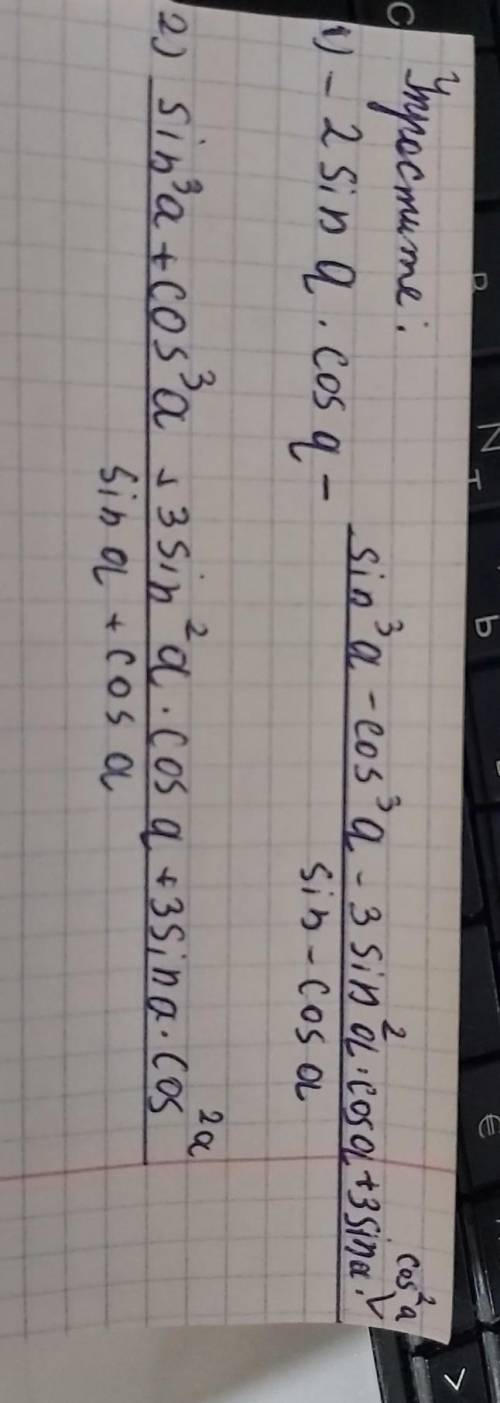 Упростите:
1) - 2 sin a · cos a - (sin³a - cos³a - 3 sin²a · cos a + 3 sin a · cos²a) / (sin - cos a)
2) (sin³a + cos³a + 3 sin²a · cos a + 3 sin a · cos²a) / (sin a + cos a)